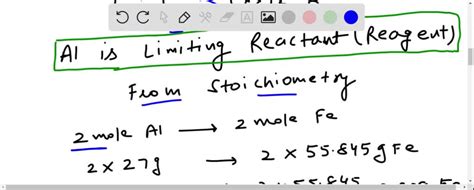 Al is Limiting Reactant (Reagent)
From Stoichiometry
2 mole Al → 2 mole Fe
2 × 27g → 2 × 55.845 g Fe
2 × 55.845